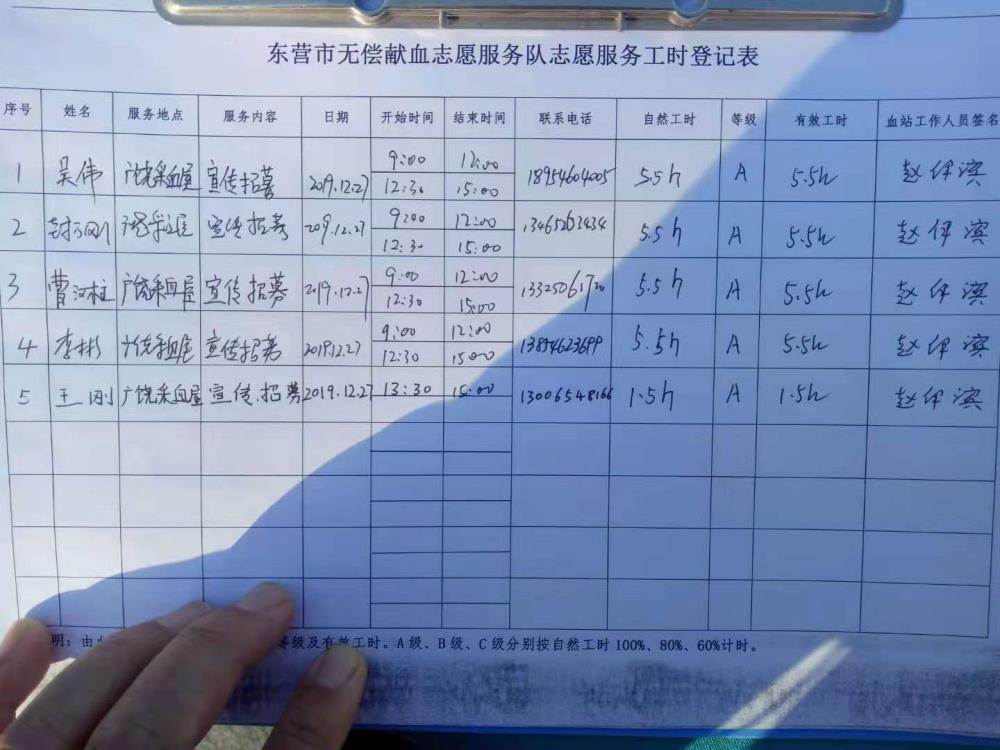 东营市无偿献血志愿服务队志愿服务工时登记表
序号 姓名 服务地点 服务内容 日期 开始时间 结束时间 联系电话 自然工时 等级 有效工时 血站工作人员签名
1 吴伟 广饶采血屋 宣传招募 2019.12.27 9:00 12:00 18954604005 5.5h A 5.5h 赵伊滨
12:30 15:00
2 宣传招募 2019.12.27 9:00 12:00 13465263434 5.5h A 5.5h 赵伊滨
12:30 15:00
3 曹江柱 广饶采血屋 宣传招募 2019.12.27 9:00 12:00 5.5h A 5.5h 赵伊滨
12:30 15:00
4 李彬 广饶采血屋 宣传招募 2019.12.27 9:00 12:00 13854623699 5.5h A 5.5h 赵伊滨
12:30 15:00
5 王刚 广饶采血屋 宣传招募 2019.12.27 13:30 15:00 13006548166 1.5h A 1.5h 赵伊滨
明：由 等级及有效工时。A级、B级、C级分别按自然工时100%、80%、60%计时。